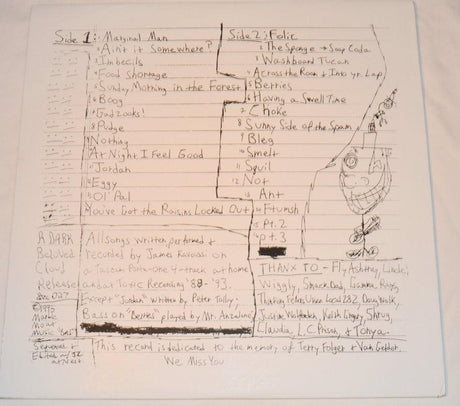 Side 1:
1 Marginal Man
2 Ain't it Somewhere?
3 Imbecils
4 Food Shortage
5 Sunday Morning in the Forest
6 Boog
7 Gadzooks!
8 Pudge
9 Nothing
10 At Night I Feel Good
11 Jordan
12 Eggy
13 Ol' Pal
14 You've Got the Raisins Locked Out
Side 2: Folic
2 The Sponge → Soap Coda
3 Washboard Tucan
4 Across the Room & Into yr. Lap
5 Berries
6 Having a Swell Time
7 Choke
8 Sunny Side of the Spam
9 Bleg
10 Smelt
11 Squil
12 Not
13 Ant
14 Ftumsh
15 Pt. 2
16 pt. 3
A DARK
Beloved
Cloud
Release
DBC 027
©1995
Marble
Mouth
Music
Sequenced &
Edited
at Noise
All songs written performed &
recorded by James Kavoussi
on a Tascam Porta-One 4-track at home
and at Toxic Recording '88-'93.
Except "Jordan" written by Peter Tolly;
Bass on "Berries" played by Mr. Anzalone
THANK TO - Fly Ashtray, Linda,
Wiggly, Smack Dad, Gamma Rays,
Thinking Fellers Union Local 282,
Justin, Keith Gregory, Shrug,
Claudia, L.C. Prison, & Tonya.
This record is dedicated to the memory of Terry Folger & Van Gelder.
We Miss You